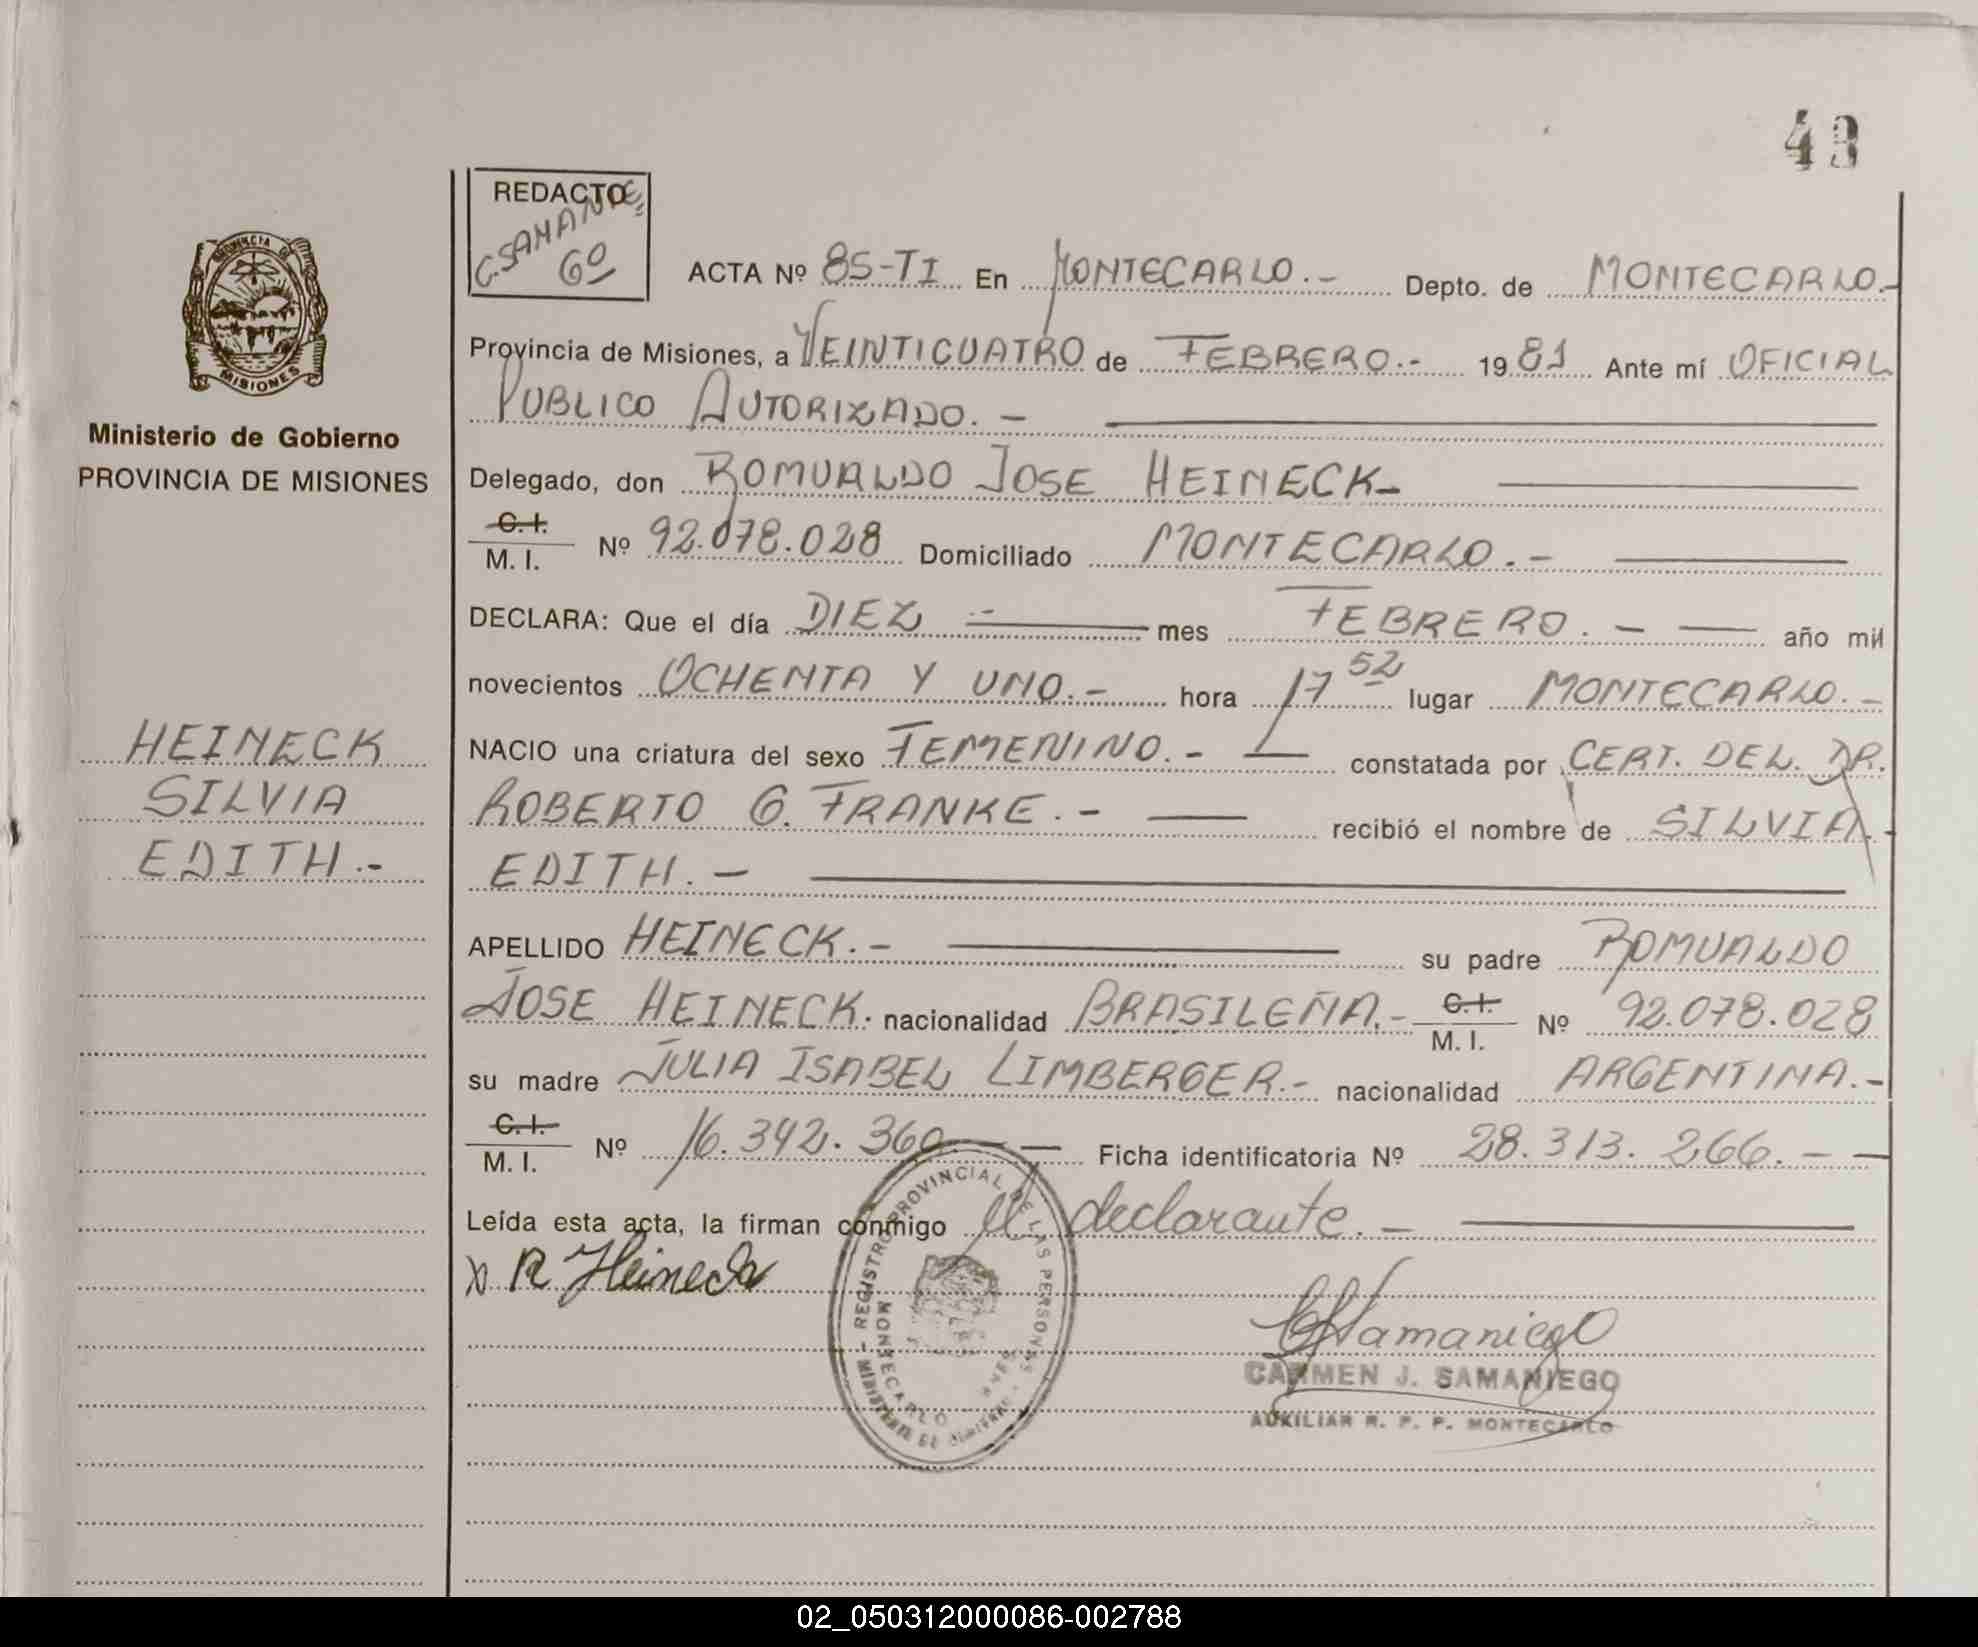 43
REDACTO
C. SAMANIE
6º
PROVINCIA DE
MISIONES
Ministerio de Gobierno
PROVINCIA DE MISIONES
HEINECK
SILVIA
EDITH.-
ACTA Nº 85-TI En MONTECARLO.- Depto. de MONTECARLO.-
Provincia de Misiones, a VEINTICUATRO de FEBRERO.- 1981 Ante mí OFICIAL
PUBLICO AUTORIZADO.-
Delegado, don ROMUALDO JOSE HEINECK-
C. I.
M. I. Nº 92.078.028 Domiciliado MONTECARLO.-
DECLARA: Que el día DIEZ.- mes FEBRERO.- - año mil
novecientos OCHENTA Y UNO.- hora 17 52 lugar MONTECARLO.-
NACIO una criatura del sexo FEMENINO.- constatada por CERT. DEL. DR.
ROBERTO G. FRANKE.- recibió el nombre de SILVIA.-
EDITH.-
APELLIDO HEINECK.- su padre ROMUALDO
JOSE HEINECK. nacionalidad BRASILEÑA.- C. I.
M. I. Nº 92.078.028
su madre JULIA ISABEL LIMBERGER.- nacionalidad ARGENTINA.-
C. I.
M. I. Nº 16.342.360 Ficha identificatoria Nº 28.313.266.- -
Leída esta acta, la firman conmigo el declarante.-
R Heineck
REGISTRO PROVINCIAL DE LAS PERSONAS
MONTECARLO
CSamaniego
CARMEN J. SAMANIEGO
AUXILIAR R. P. P. MONTECARLO
02_050312000086-002788